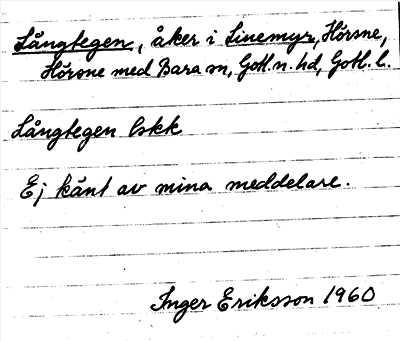 Långtegen, åker i Linemyr, Hörsne,
Hörsne med Bara sn, Gotl. n. hd, Gotl. l.
Långtegen lskk
Ej känt av mina meddelare.
Inger Eriksson 1960